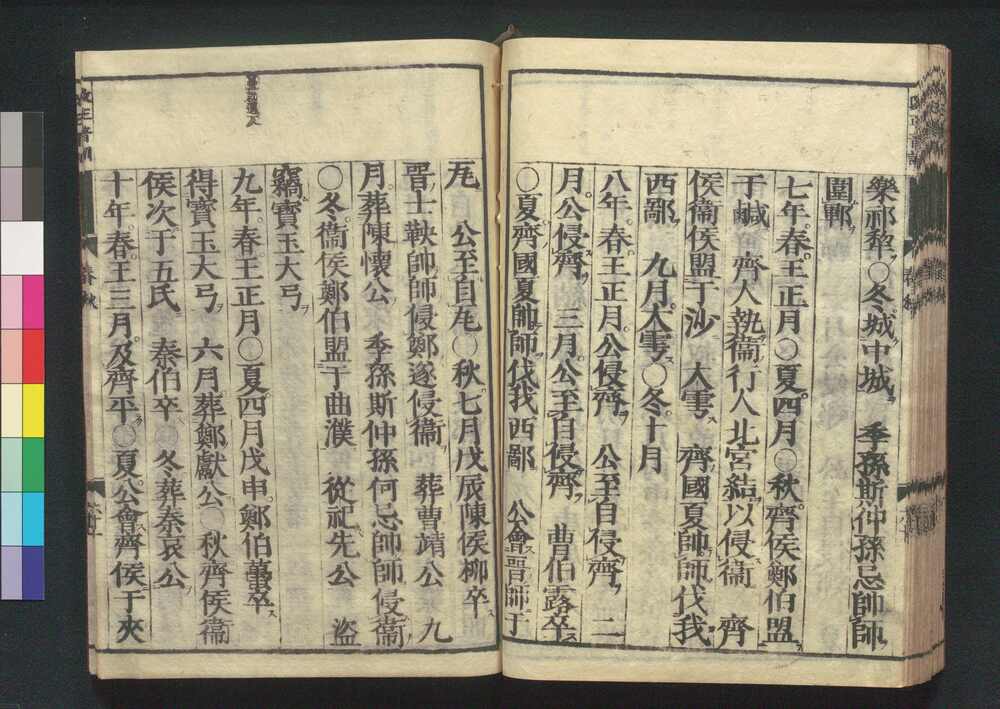 樂祁犂○冬城中城 季孫斯仲孫忌帥師
圍鄆
七年春王正月○夏四月○秋齊侯鄭伯盟
于鹹 齊人執衞行人北宮結以侵衞 齊
侯衞侯盟于沙 大雩 齊國夏帥師伐我
西鄙 九月大雩○冬十月
八年春王正月公侵齊 公至自侵齊 二
月公侵齊 三月公至自侵齊 曹伯露卒
○夏齊國夏帥師伐我西鄙 公會晉師于
瓦 公至自瓦○秋七月戊辰陳侯柳卒
晋士鞅帥師侵鄭遂侵衞 葬曹靖公 九
月葬陳懷公 季孫斯仲孫何忌帥師侵衞
○冬衞侯鄭伯盟于曲濮 從祀先公 盜
竊寳玉大弓
九年春王正月○夏四月戊申鄭伯蠆卒
得寳玉大弓 六月葬鄭獻公○秋齊侯衞
侯次于五氏 秦伯卒○冬葬秦哀公
十年春王三月及齊平○夏公會齊侯于夾
春秋
春秋